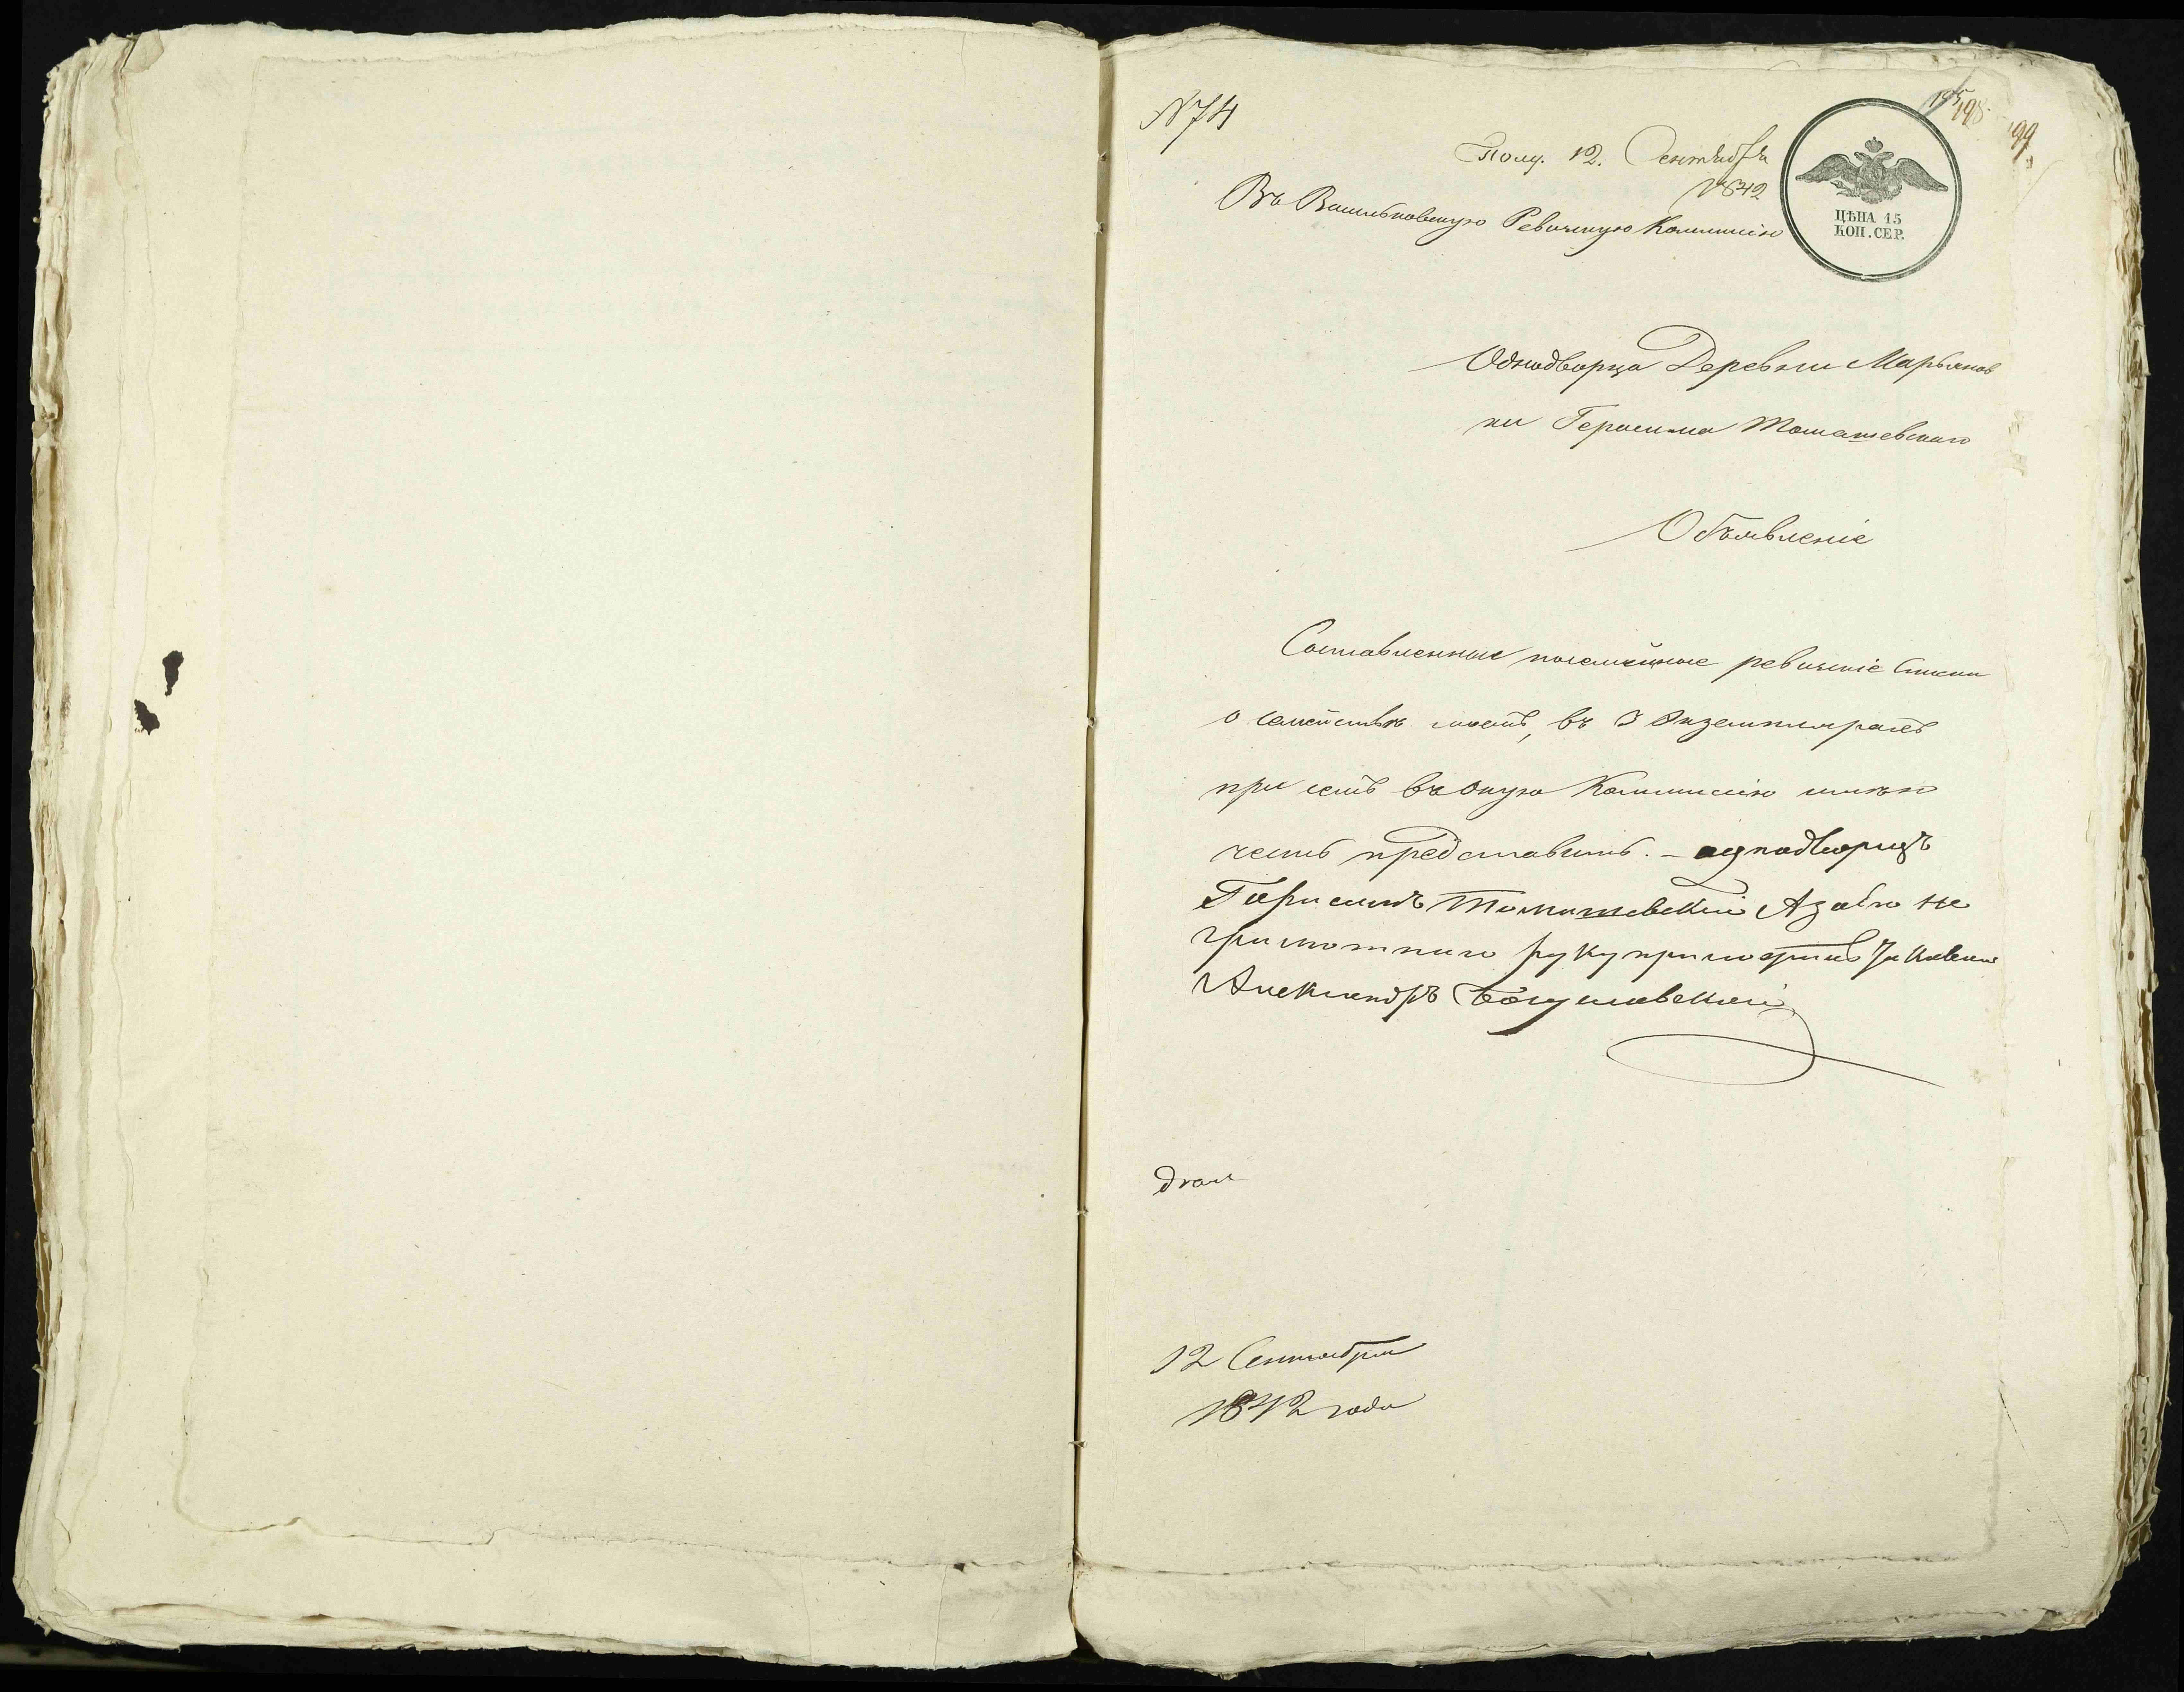 N 74
195 198. 199
Полу. 12. Сентября
1842
Въ Васильковскую Ревизскую Коммисію
ЦѢНА 15
КОП. СЕР.
Однодворца Деревни Марьянов
ки Герасима Томашевскаго
Объявленіе
Составленные посемейные ревизскіе Списки
о семействѣ моемъ, въ 3 Экземплярахъ
при семъ въ оную Коммисію имѣю
честь представить. – однодворецъ
Герасимъ Томашевскій А за его не
грамотнаго руку приложилъ
Александръ Богушевскій
12 Сентября
1842 года